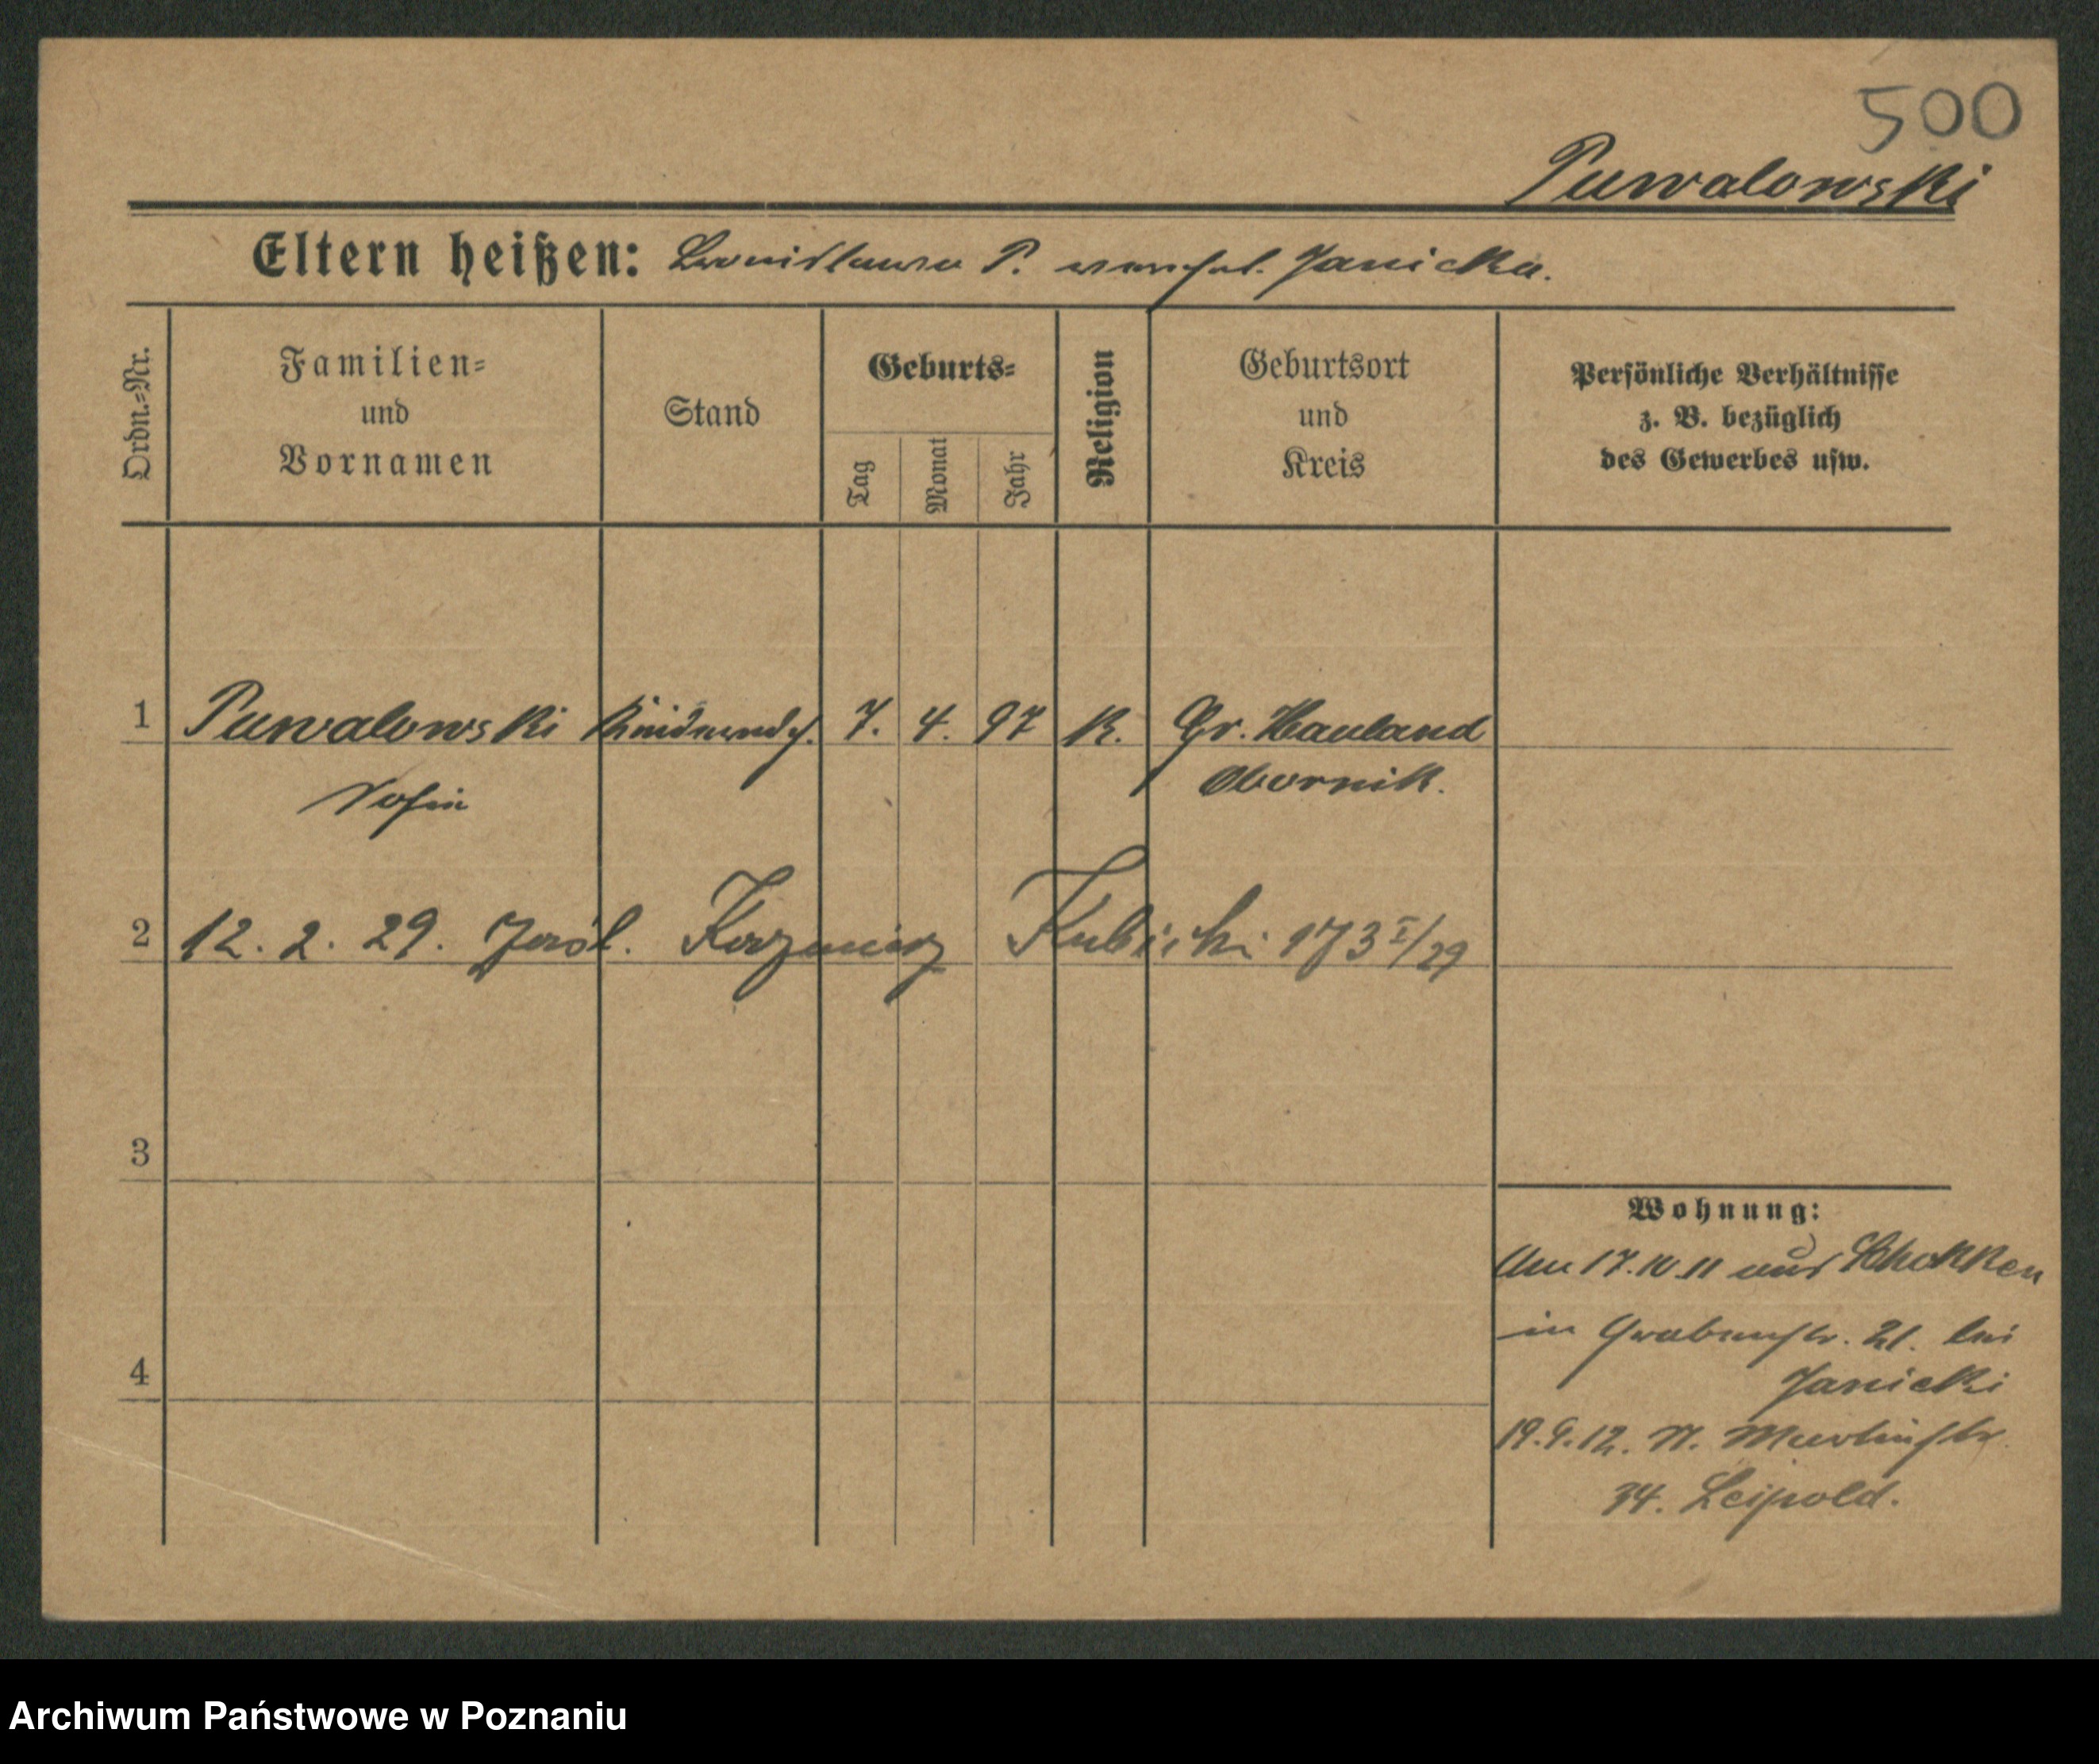 500
Puwalowski
Eltern heißen: Bronislawa P. verehel. Janicka.
Ordn.-Nr.
Familien-
und
Vornamen
Stand
Geburts-
Tag
Monat
Jahr
Religion
Geburtsort
und
Kreis
Persönliche Verhältnisse
z. B. bezüglich
des Gewerbes usw.
1 Puwalowski 7. 4. 97 K. Gr. Hauland
Obornik.
2 12. 2. 29. Kazmierz Kubicki 173 I/29
3
4
Wohnung:
Am 17.10.11 aus Schokken
in Grabenstr. 21. bei
Janicki
19.9.12. N. Martinstr.
34. Leipold.
Archiwum Państwowe w Poznaniu